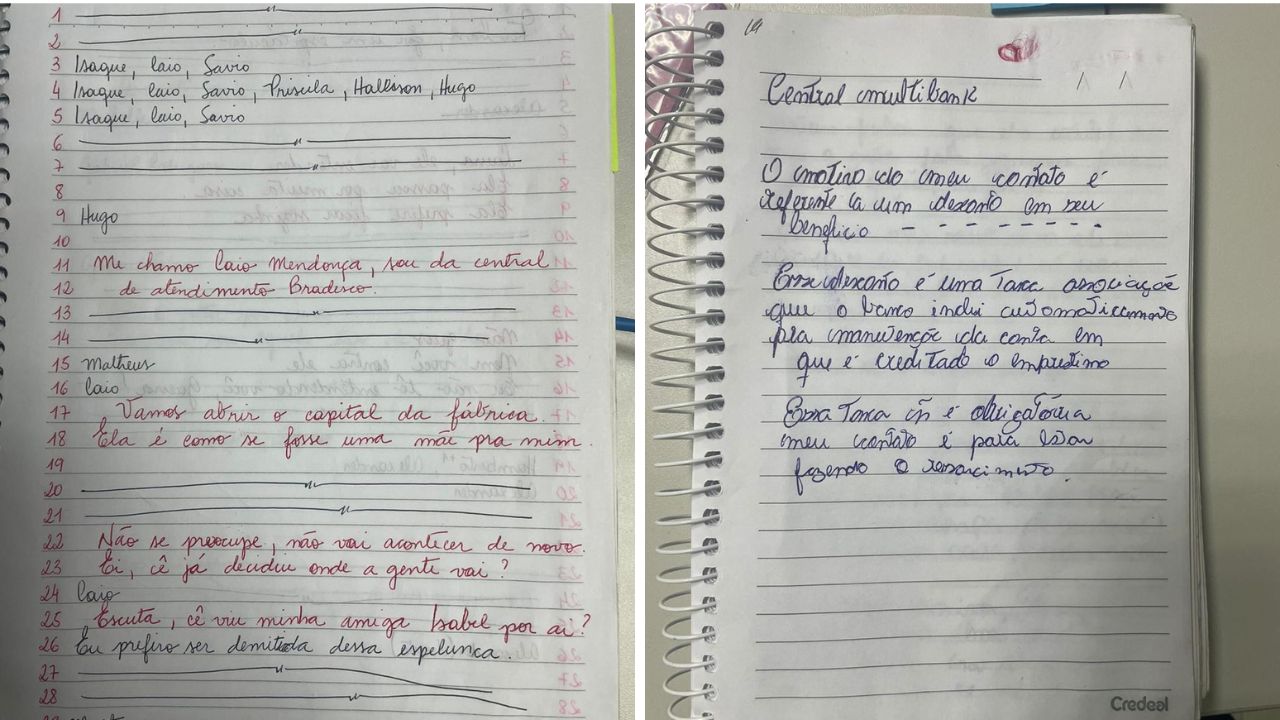 1
2
3 Isaque, Caio, Savio
4 Isaque, Caio, Savio, Priscila, Hallison, Hugo
5 Isaque, Caio, Savio
6
7
8
9 Hugo
10
11 Me chamo Caio Mendonça, sou da central
12 de atendimento Bradesco.
13
14
15 Matheus
16 Caio
17 Vamos abrir o capital da fábrica.
18 Ela é como se fosse uma mãe pra mim.
19
20
21
22 Não se preocupe, não vai acontecer de novo.
23 Ei, cê já decidiu onde a gente vai?
24 Caio
25 Escuta, cê viu minha amiga Isabel por aí?
26 Eu prefiro ser demitida dessa espelunca.
27
28
Central multibank
O motivo do meu contato é
referente a um desconto em seu
beneficio - - - - - - - -
Esse desconto é uma Taxa
que o banco inclui automaticamente
pra manutenção da conta em
que é creditado o emprestimo
Essa Taxa ñ é obrigatória
meu contato é para
fazendo o ressarcimento.
Credeal